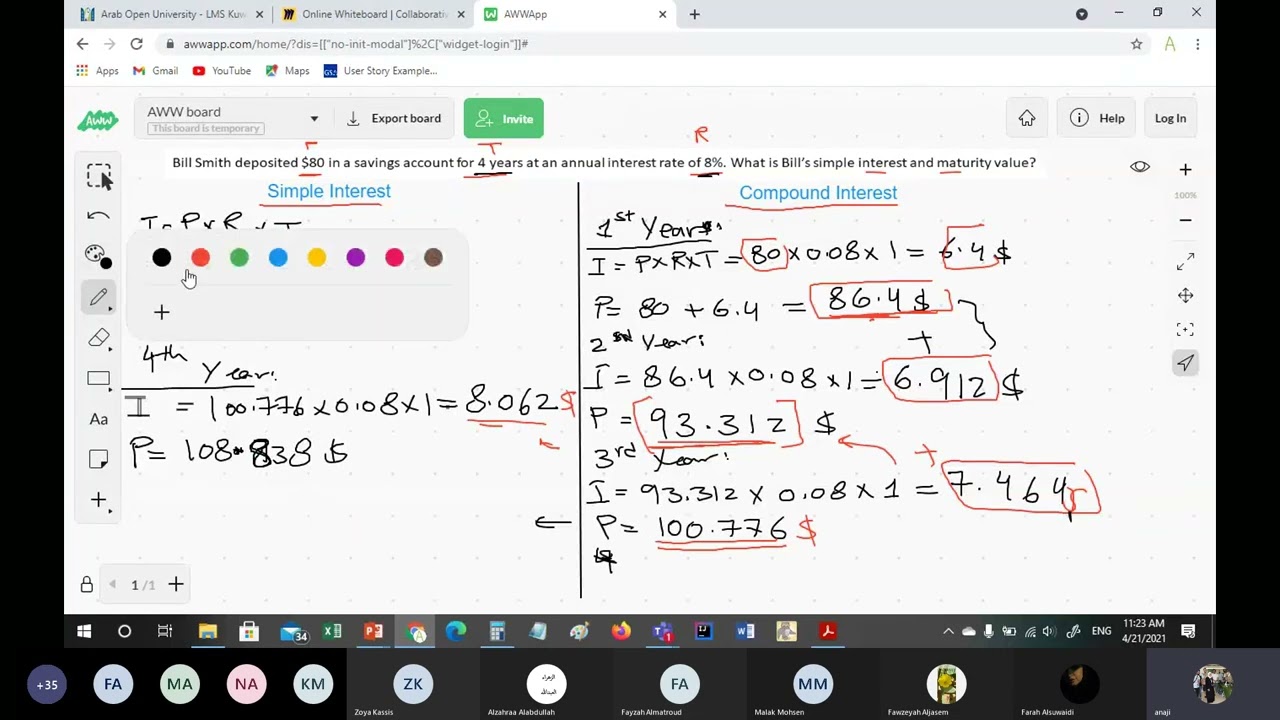 Arab Open University - LMS Kuw
Online Whiteboard | Collaborativ
AWWApp
awwapp.com/home/?dis=[["no-init-modal"]%2C["widget-login"]]#
A
Apps
Gmail
YouTube
Maps
User Story Example...
AWW
AWW board
This board is temporary
Export board
Invite
Help
Log In
100%
T
R
Bill Smith deposited $80 in a savings account for 4 years at an annual interest rate of 8%. What is Bill's simple interest and maturity value?
Simple Interest
I = P x R x T
4th Year:
I = 100.776 x 0.08 x 1 = 8.062 $
P = 108.838 $
Compound Interest
1st Year:
I = P x R x T = 80 x 0.08 x 1 = 6.4 $
P = 80 + 6.4 = 86.4 $
2nd Year:
+
I = 86.4 x 0.08 x 1 = 6.912 $
P = 93.312 $
3rd Year:
+
I = 93.312 x 0.08 x 1 = 7.464
P = 100.776 $
Aa
1 / 1
34
1
ENG
11:23 AM
4/21/2021
+35
FA
MA
NA
KM
ZK
Zoya Kassis
الزهراء
العبدالله
Alzahraa Alabdullah
FA
Fayzah Almatroud
MM
Malak Mohsen
Fawzeyah Aljasem
Farah Alsuwaidi
anaji